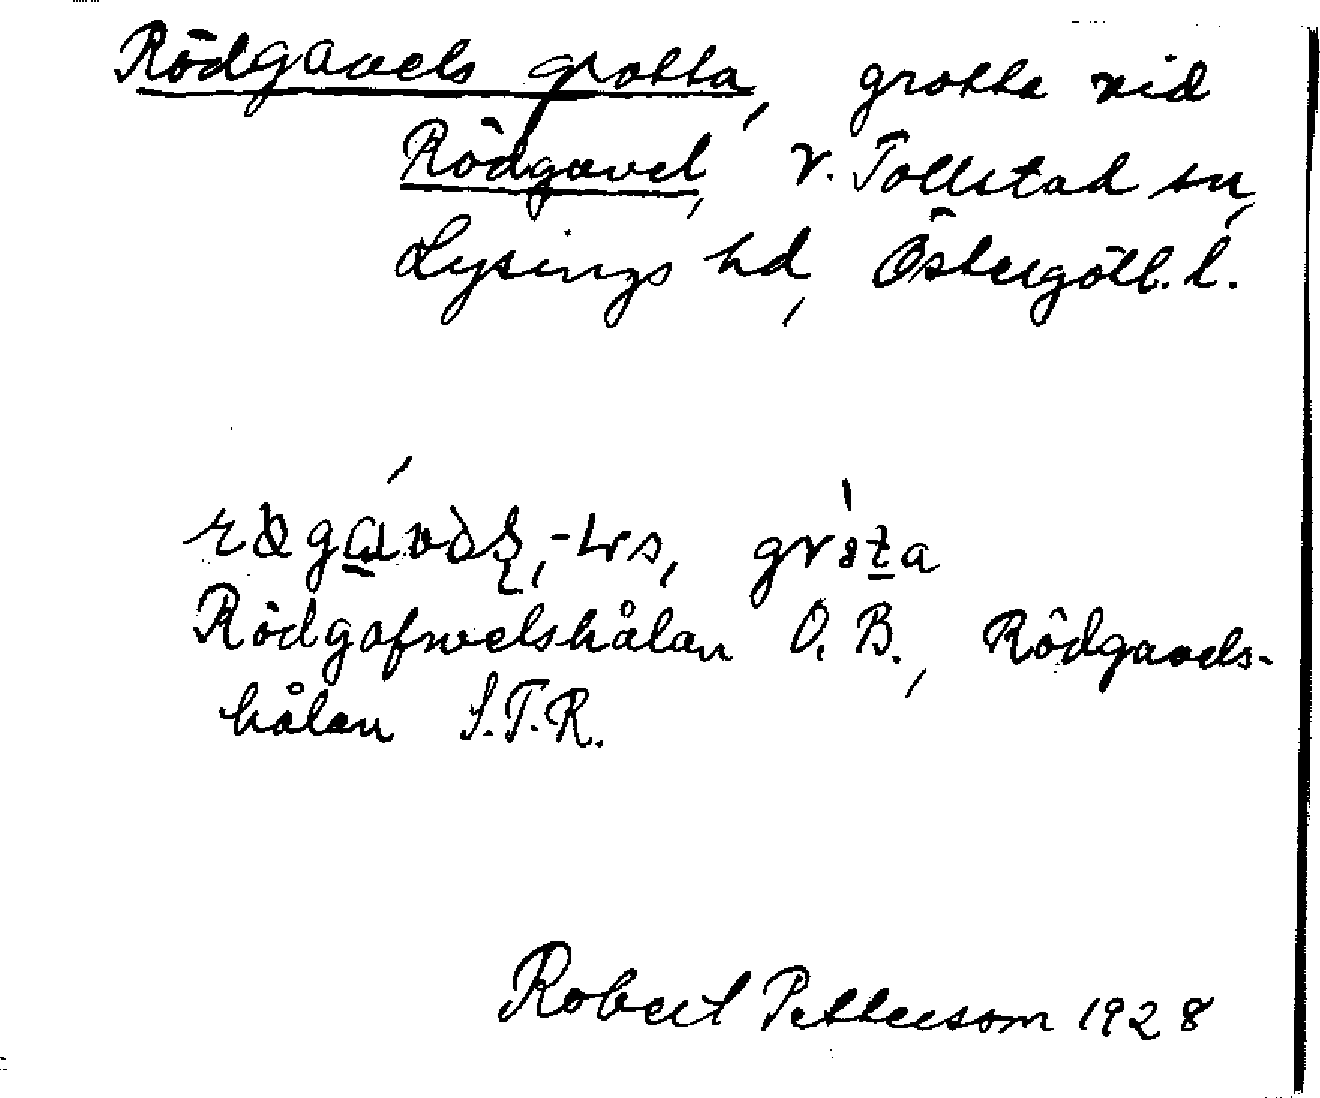 Rödgavels grotta, grotta vid
Rödgavel, V. Tollstad sn,
Lysings hd, Östergötl. l.
Rödgafwelshålan O. B., Rödgavels-
hålan S.T.R.
Robert Petterson 1928